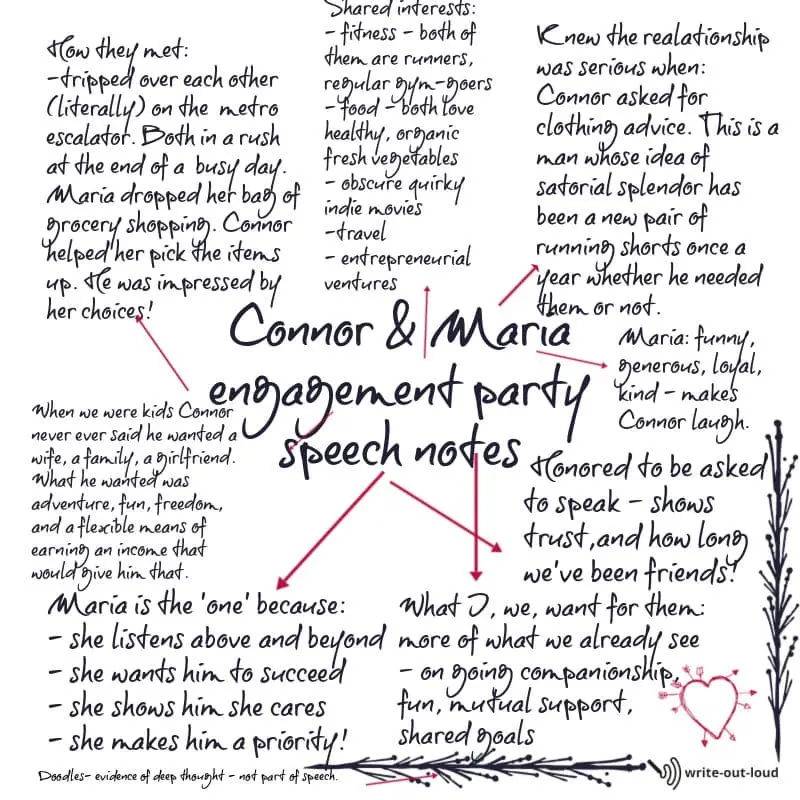 How they met:
-tripped over each other
(literally) on the metro
escalator. Both in a rush
at the end of a busy day.
Maria dropped her bag of
grocery shopping. Connor
helped her pick the items
up. He was impressed by
her choices!
Shared interests:
- fitness - both of
them are runners,
regular gym-goers
- food - both love
healthy, organic
fresh vegetables
- obscure quirky
indie movies
-travel
- entrepreneurial
ventures
Knew the realationship
was serious when:
Connor asked for
clothing advice. This is a
man whose idea of
satorial splendor has
been a new pair of
running shorts once a
year whether he needed
them or not.
Connor & Maria
engagement party
speech notes
Maria: funny,
generous, loyal,
kind - makes
Connor laugh.
When we were kids Connor
never ever said he wanted a
wife, a family, a girlfriend.
What he wanted was
adventure, fun, freedom,
and a flexible means of
earning an income that
would give him that.
Honored to be asked
to speak - shows
trust,and how long
we've been friends!
Maria is the 'one' because:
- she listens above and beyond
- she wants him to succeed
- she shows him she cares
- she makes him a priority!
What I, we, want for them:
more of what we already see
- on going companionship,
fun, mutual support,
shared goals
Doodles- evidence of deep thought - not part of speech.
write-out-loud